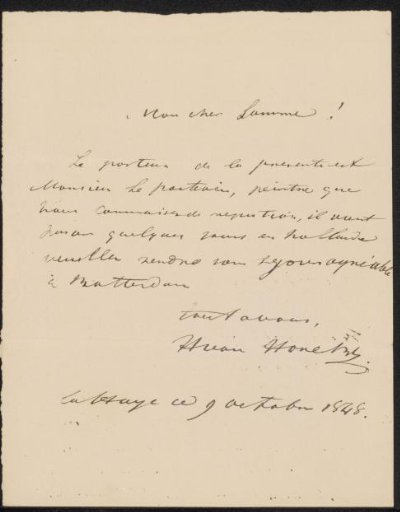 Mon cher Lamme!
Le porteur de la presente est
Monsieur Le poitevin, peintre que
vous connaissez de reputation, il vient
passer quelques jours en hollande
veuillez rendre son sejour agréable
à Rotterdam
tout a vous,
La Haye ce 9 octobre 1848.